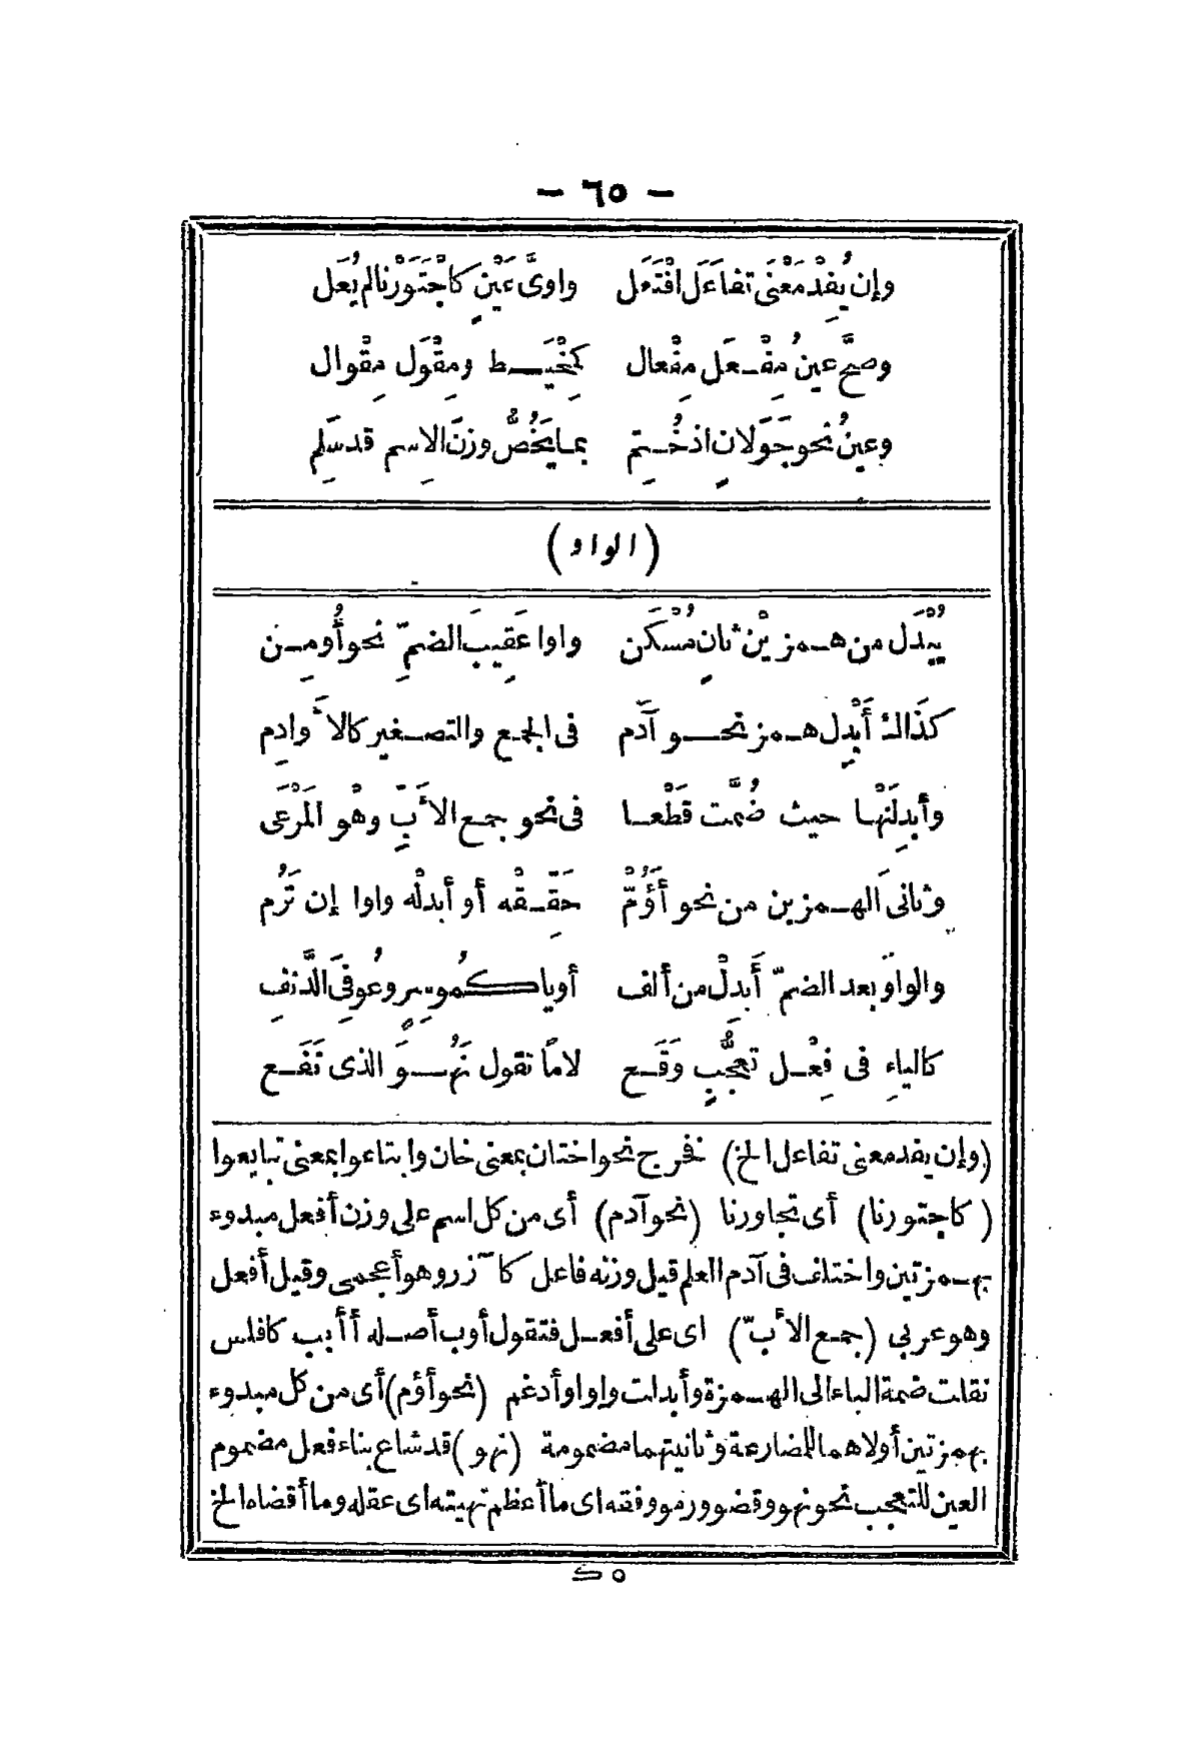 — ٦٥ —
وإن يُفِدْ مَعْنَى تفاعَلَ افْتَعَل واوىَّ عَيْنٍ كاجْتَوَرْنا لم يُعَل
وصحَّ عينُ مِفْعَل مِفْعال كمِخْيَط ومِقْوَل مِقْوال
وعينُ نحو جَوَلانٍ اذ خُتِم بما يَخُصُّ وزنَ الاِسم قد سَلِم
(الواو)
يُبْدَل من همزيْن ثانٍ مُسْكَن واوا عَقِيبَ الضمِّ نحو أُومِن
كذَاك أَبْدِل همز نحو آدَم فى الجمع والتصغير كالأَوادِم
وأبدِلَنْها حيث ضُمَّت قَطْعا فى نحو جمع الأَبِّ وهْو المَرْعَى
وثانىَ الهمزين من نحو أَؤُمّْ حَقِّقْه أو أبدلْه واوا إن تَرُم
والواوَ بعد الضمّ أَبدِلْ من ألف أو يا كمُوسِرٍ وعُوفِىَ الدَّنِف
كالياءِ فى فِعْل تعجُّبٍ وَقَع لامًا تقول نَهُوَ الذى نَفَع
(وإن يفد معنى تفاعل الخ) نخرج نحو اختان بمعنى خان وابتاعوا بمعنى تبايعوا
(كاجتورنا) أى تجاورنا (نحو آدم) أى من كل اسم على وزن أفعل مبدوء
بهمزتين واختلف فى آدم العلم قيل وزنه فاعل كآزر وهو أعجمى وقيل أفعل
وهو عربى (جمع الأبّ) اى على أفعل فتقول أوب أصله أأبب كافلس
نقلت ضمة الباء الى الهمزة وأبدلت واوا وأدغم (نحو أؤم) أى من كل مبدوء
بهمزتين أولاهما للمضارعة وثانيتهما مضمومة (نهو) قد شاع بناء فعل مضموم
العين للتعجب نحو نهو وقضو ورمو وفقه اى ما أعظم نهيته اى عقله وما أقضاه الخ